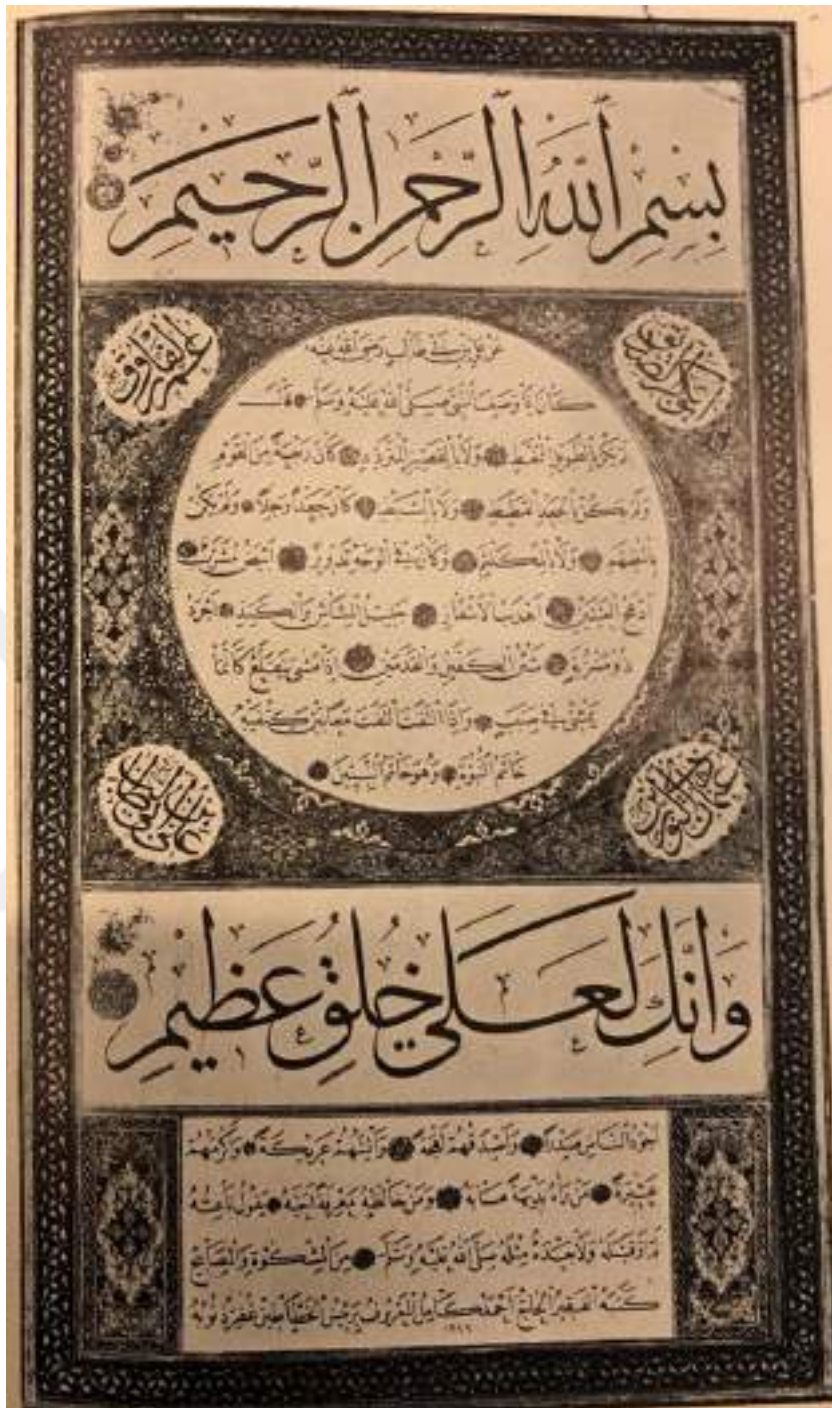 بِسْمِ اللهِ الرَّحْمٰنِ الرَّحِيمِ
ابو بكر
عمر الفاروق
عن علي بن ابي طالب رضي الله عنه
كان اذا وصف النبي صلى الله عليه وسلم قال
لم يكن بالطويل الممغط ولا بالقصير المتردد كان ربعة من القوم
ولم يكن بالجعد القطط ولا بالسبط كان جعدا رجلا ولم يكن
بالمطهم ولا بالمكلثم وكان في الوجه تدوير ابيض مشرب
ادعج العينين اهدب الاشفار جليل المشاش والكتد اجرد
ذو مسربة شثن الكفين والقدمين اذا مشى يتقلع كانما
يمشي في صبب واذا التفت التفت معا بين كتفيه
خاتم النبوة وهو خاتم النبيين
عثمان ذو النورين
علي بن ابي طالب
وَاِنَّكَ لَعَلٰى خُلُقٍ عَظِيمٍ
اجود الناس صدرا واصدقهم لهجة والينهم عريكة واكرمهم
عشيرة من رآه بديهة هابه ومن خالطه معرفة احبه يقول ناعته
لم ار قبله ولا بعده مثله صلى الله عليه وسلم من المشكوة والمصابيح
كتبه الفقير الحاج احمد كامل المعروف برئيس الخطاطين غفر ذنوبه